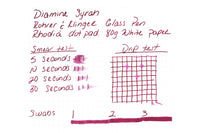 Diamine Syrah
Rohrer & Klinger Glass Pen
Rhodia dot pad 80g White paper
Smear test
Drip test
5 Seconds
10 Seconds
20 Seconds
30 Seconds
Swabs 1 2 3